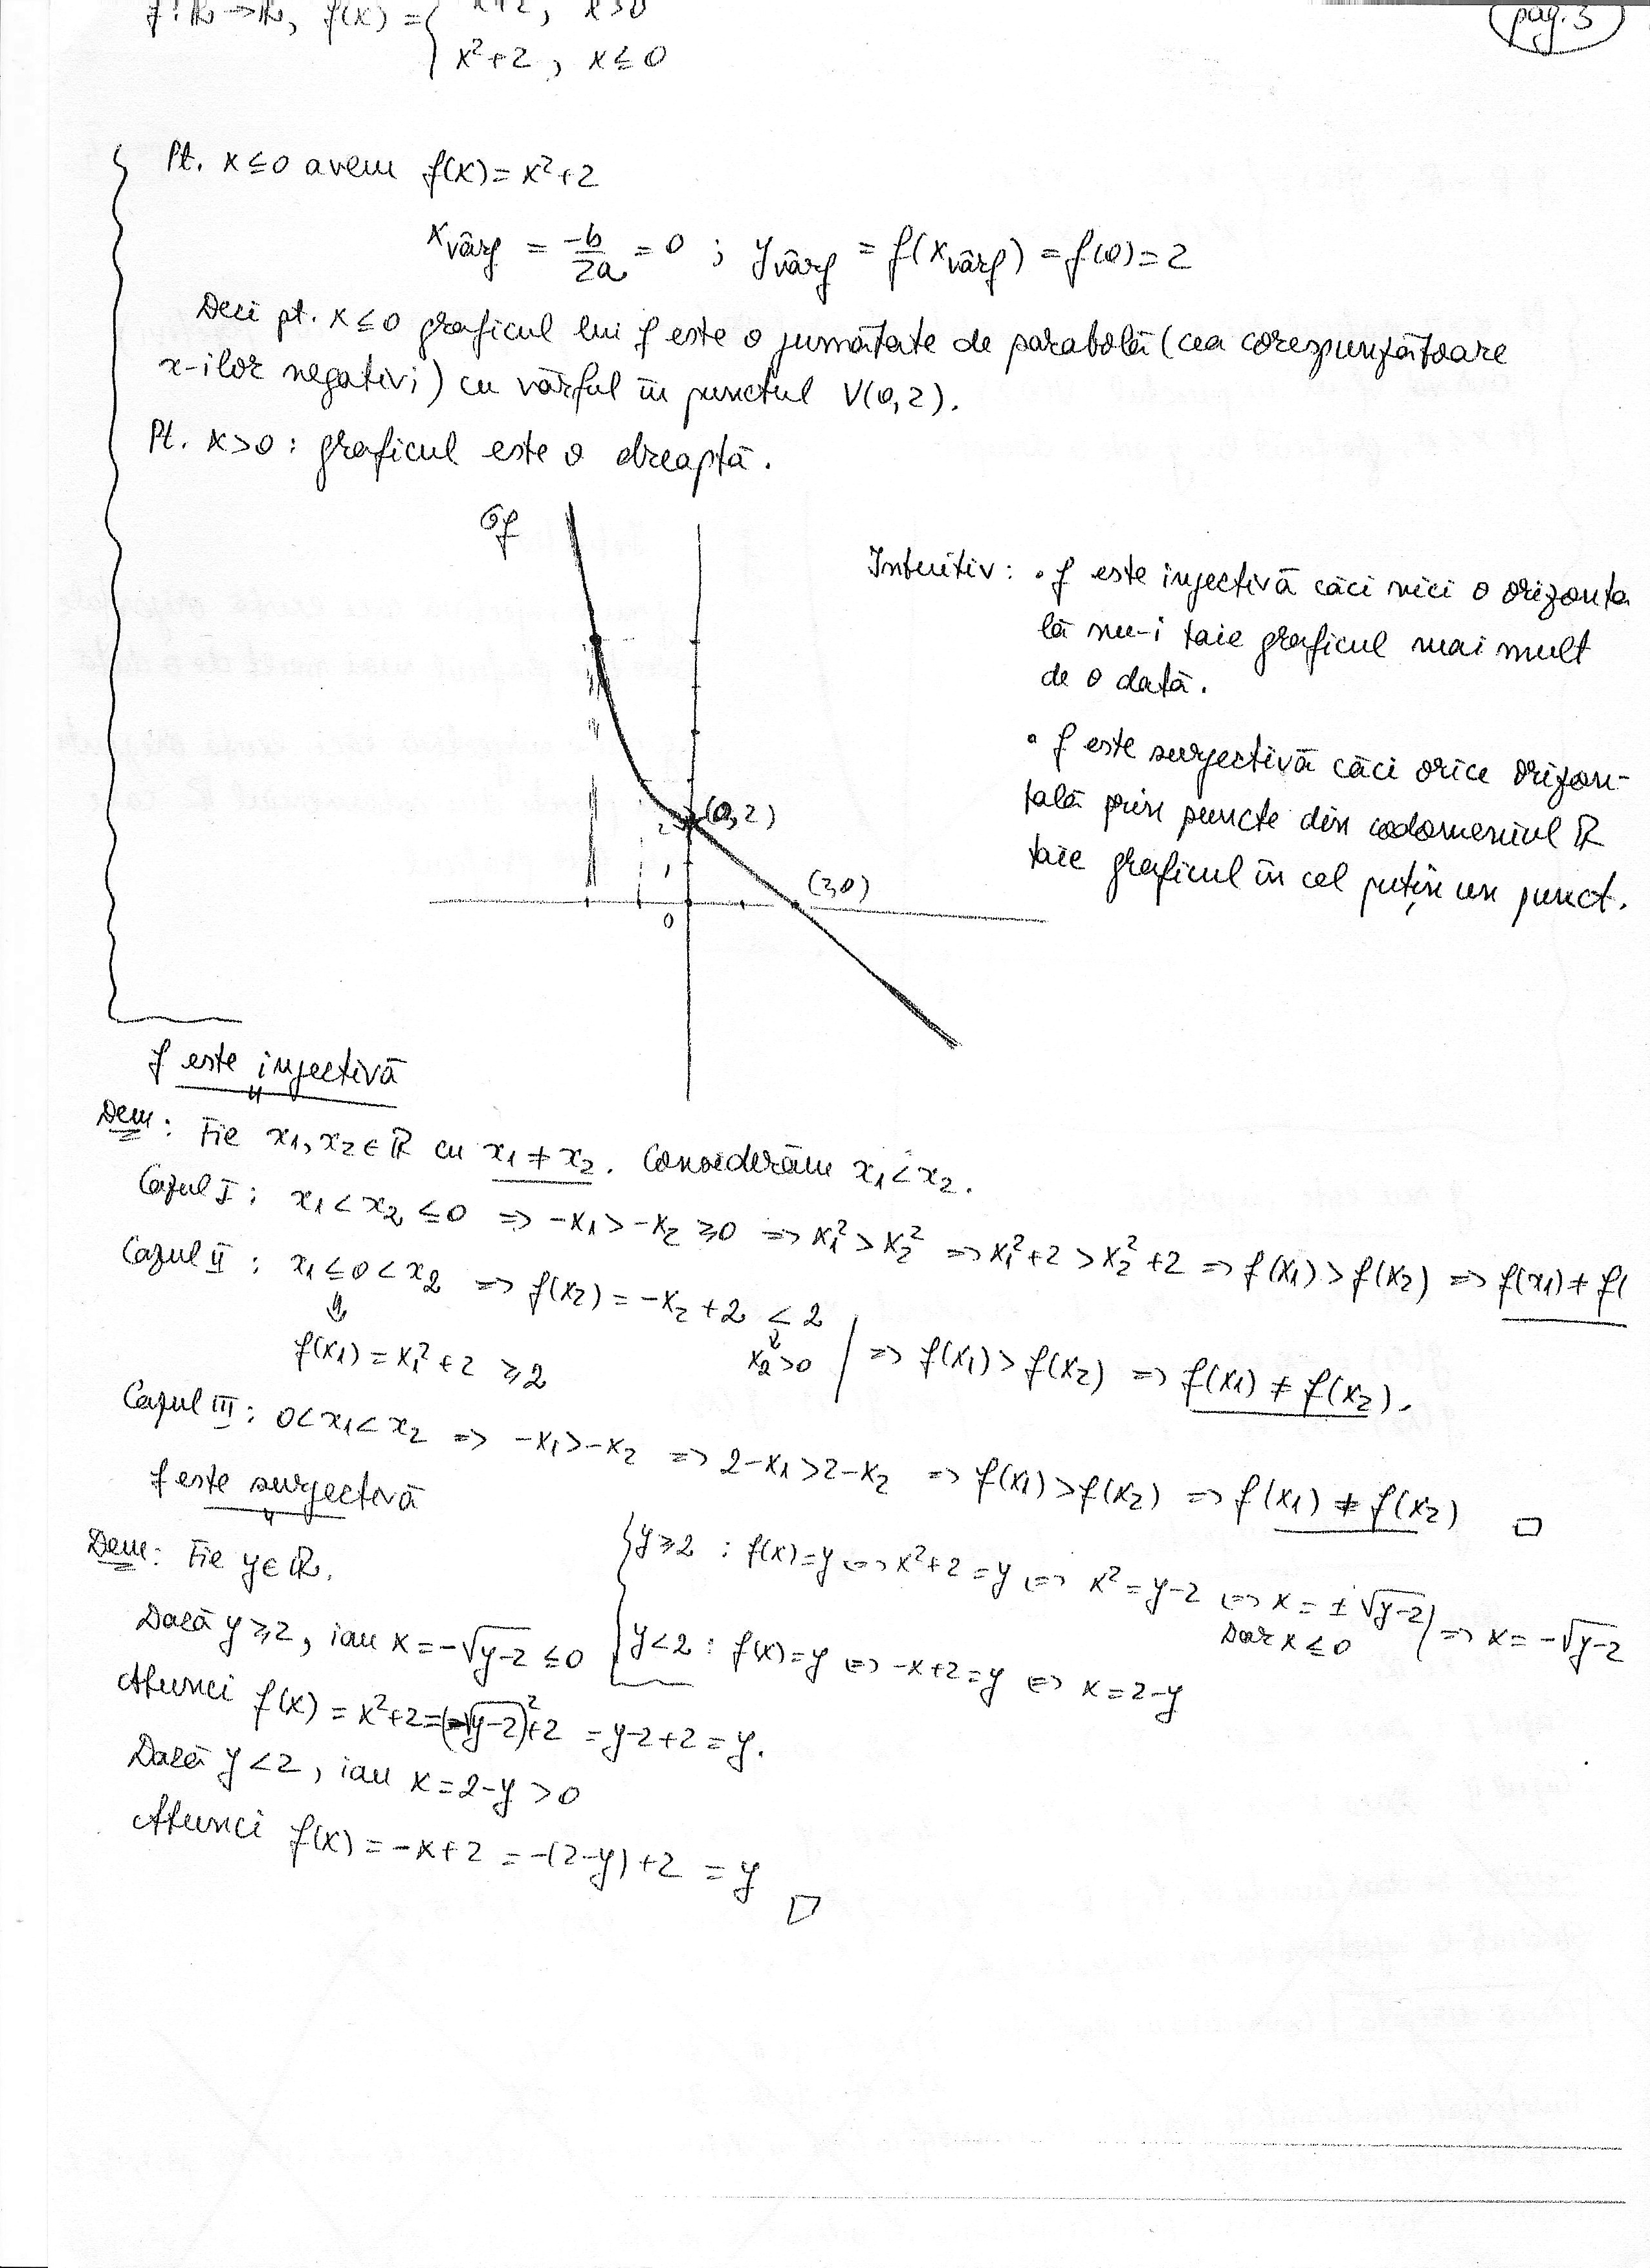 f: ℝ → ℝ, f(x) = { x+2, x>0
x²+2, x≤0
pag. 3
Pt. x≤0 avem f(x) = x²+2
x vârf = -b/2a = 0 ; y vârf = f(x vârf) = f(0) = 2
Deci pt. x≤0 graficul lui f este o jumătate de parabolă (cea corespunzătoare
x-ilor negativi) cu vârful în punctul V(0,2).
Pt. x>0 : graficul este o dreaptă.
Gf
(0,2)
2
1
(2,0)
0
Intuitiv: • f este injectivă căci nici o orizonta
lă nu-i taie graficul mai mult
de o dată.
• f este surjectivă căci orice orizon-
tală prin puncte din codomeniul ℝ
taie graficul în cel puțin un punct.
f este injectivă
Dem: Fie x1, x2 ∈ ℝ cu x1 ≠ x2. Considerăm x1 < x2.
Cazul I : x1 < x2 ≤ 0 => -x1 > -x2 ≥ 0 => x1² > x2² => x1²+2 > x2²+2 => f(x1) > f(x2) => f(x1) ≠ f(
Cazul II : x1 ≤ 0 < x2 => f(x2) = -x2+2 < 2
⇓
f(x1) = x1²+2 ≥ 2
↓
x2>0
| => f(x1) > f(x2) => f(x1) ≠ f(x2).
Cazul III : 0 < x1 < x2 => -x1 > -x2 => 2-x1 > 2-x2 => f(x1) > f(x2) => f(x1) ≠ f(x2) □
f este surjectivă
Dem: Fie y ∈ ℝ.
Dacă y ≥ 2, iau x = -√(y-2) ≤ 0
Atunci f(x) = x²+2 = (-√(y-2))²+2 = y-2+2 = y.
Dacă y < 2, iau x = 2-y > 0
Atunci f(x) = -x+2 = -(2-y)+2 = y □
y≥2 : f(x)=y <=> x²+2=y <=> x²=y-2 <=> x=±√(y-2)
Dar x≤0
=> x=-√(y-2)
y<2 : f(x)=y <=> -x+2=y <=> x=2-y